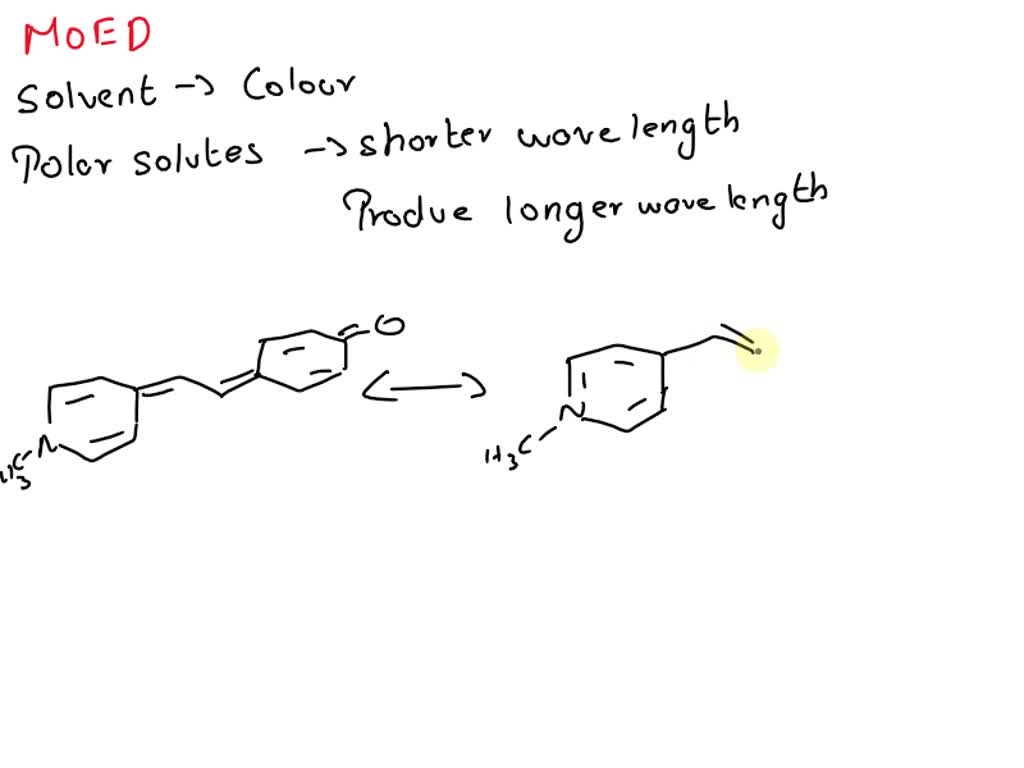 MOED
Solvent → Colour
Polar solutes → shorter wave length
Produe longer wave length
O
N
H3C
N
H3C